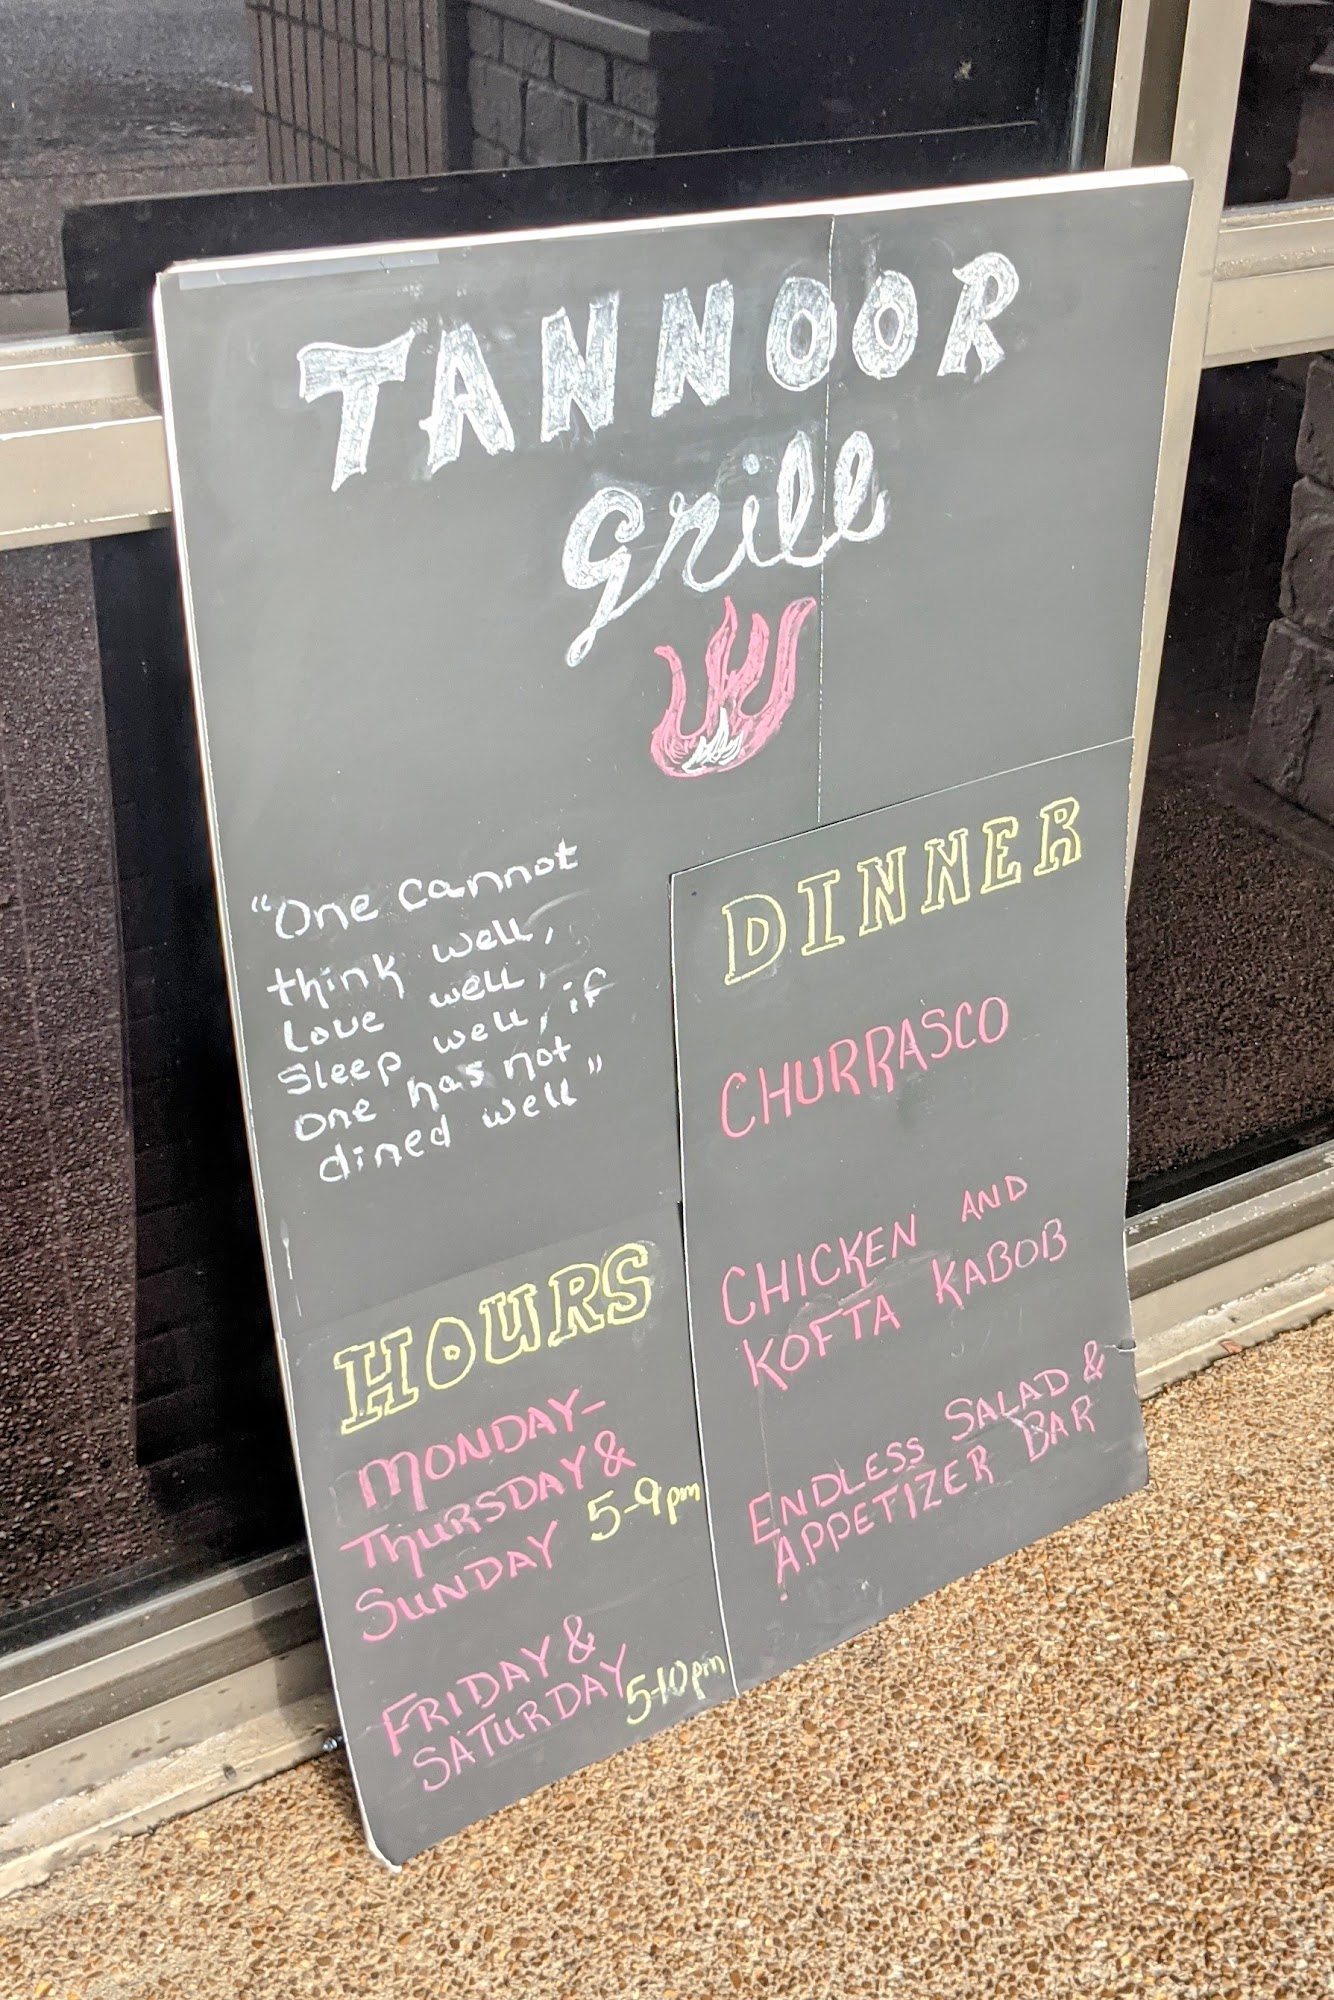 TANNOOR
Grill
"One cannot
think well,
love well,
Sleep well, if
one has not
dined well"
HOURS
MONDAY-
THURSDAY &
SUNDAY 5-9pm
FRIDAY &
SATURDAY 5-10pm
DINNER
CHURRASCO
CHICKEN AND
KOFTA KABOB
ENDLESS SALAD &
APPETIZER BAR